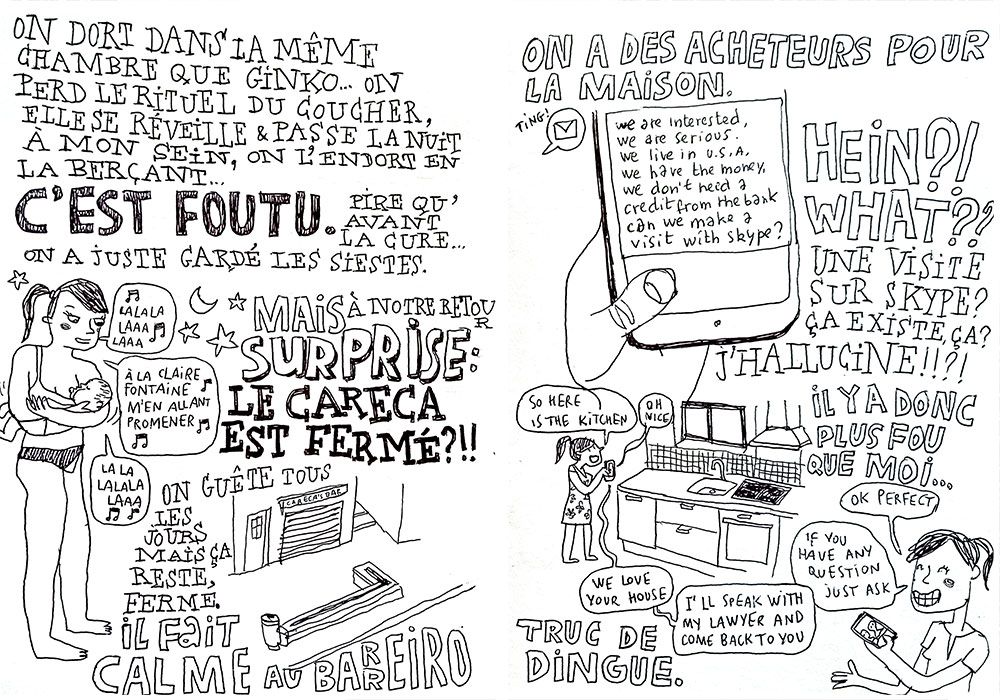 ON DORT DANS LA MÊME
CHAMBRE QUE GINKO... ON
PERD LE RITUEL DU COUCHER,
ELLE SE RÉVEILLE & PASSE LA NUIT
À MON SEIN, ON L'ENDORT EN
LA BERÇANT...
C'EST FOUTU.
PIRE QU'
AVANT
LA CURE...
ON A JUSTE GARDÉ LES SIESTES.
LALALA
LAAA
LAAA
À LA CLAIRE
FONTAINE
M'EN ALLANT
PROMENER
LA LA
LALALA
LAAA
MAIS À NOTRE RETOUR
SURPRISE:
LE CARECA
EST FERMÉ?!!
ON GUÊTE TOUS
LES
JOURS
MAIS ÇA
RESTE,
FERME.
CARECA'S BAR
IL FAIT
CALME AU BARREIRO
ON A DES ACHETEURS POUR
LA MAISON.
TING!
we are interested,
we are serious.
we live in U.S.A.
we have the money,
we don't need a
credit from the bank
can we make a
visit with skype?
HEIN?!
WHAT??
UNE VISITE
SUR SKYPE?
ÇA EXISTE, ÇA?
J'HALLUCINE!!?!
SO HERE
IS THE KITCHEN
OH
NICE
IL Y A DONC
PLUS FOU
QUE MOI...
OK PERFECT
IF YOU
HAVE ANY
QUESTION
JUST ASK
WE LOVE
YOUR HOUSE
I'LL SPEAK WITH
MY LAWYER AND
COME BACK TO YOU
TRUC DE
DINGUE.